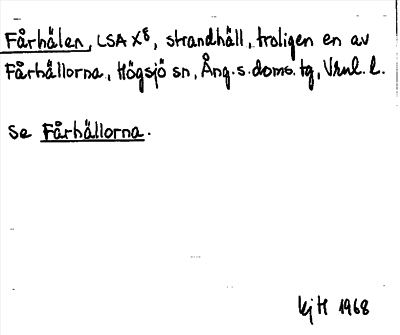 Fårhälen, LSA X⁸, strandhäll, troligen en av
Fårhällorna, Högsjö sn, Ång. s. doms. tg, Vrnl. l.
Se Fårhällorna.
KjH 1968